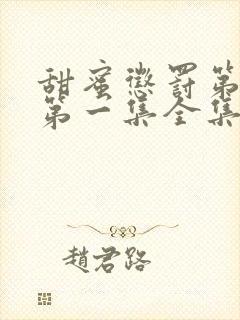 甜蜜懲罰第
第一集全集
趙君路